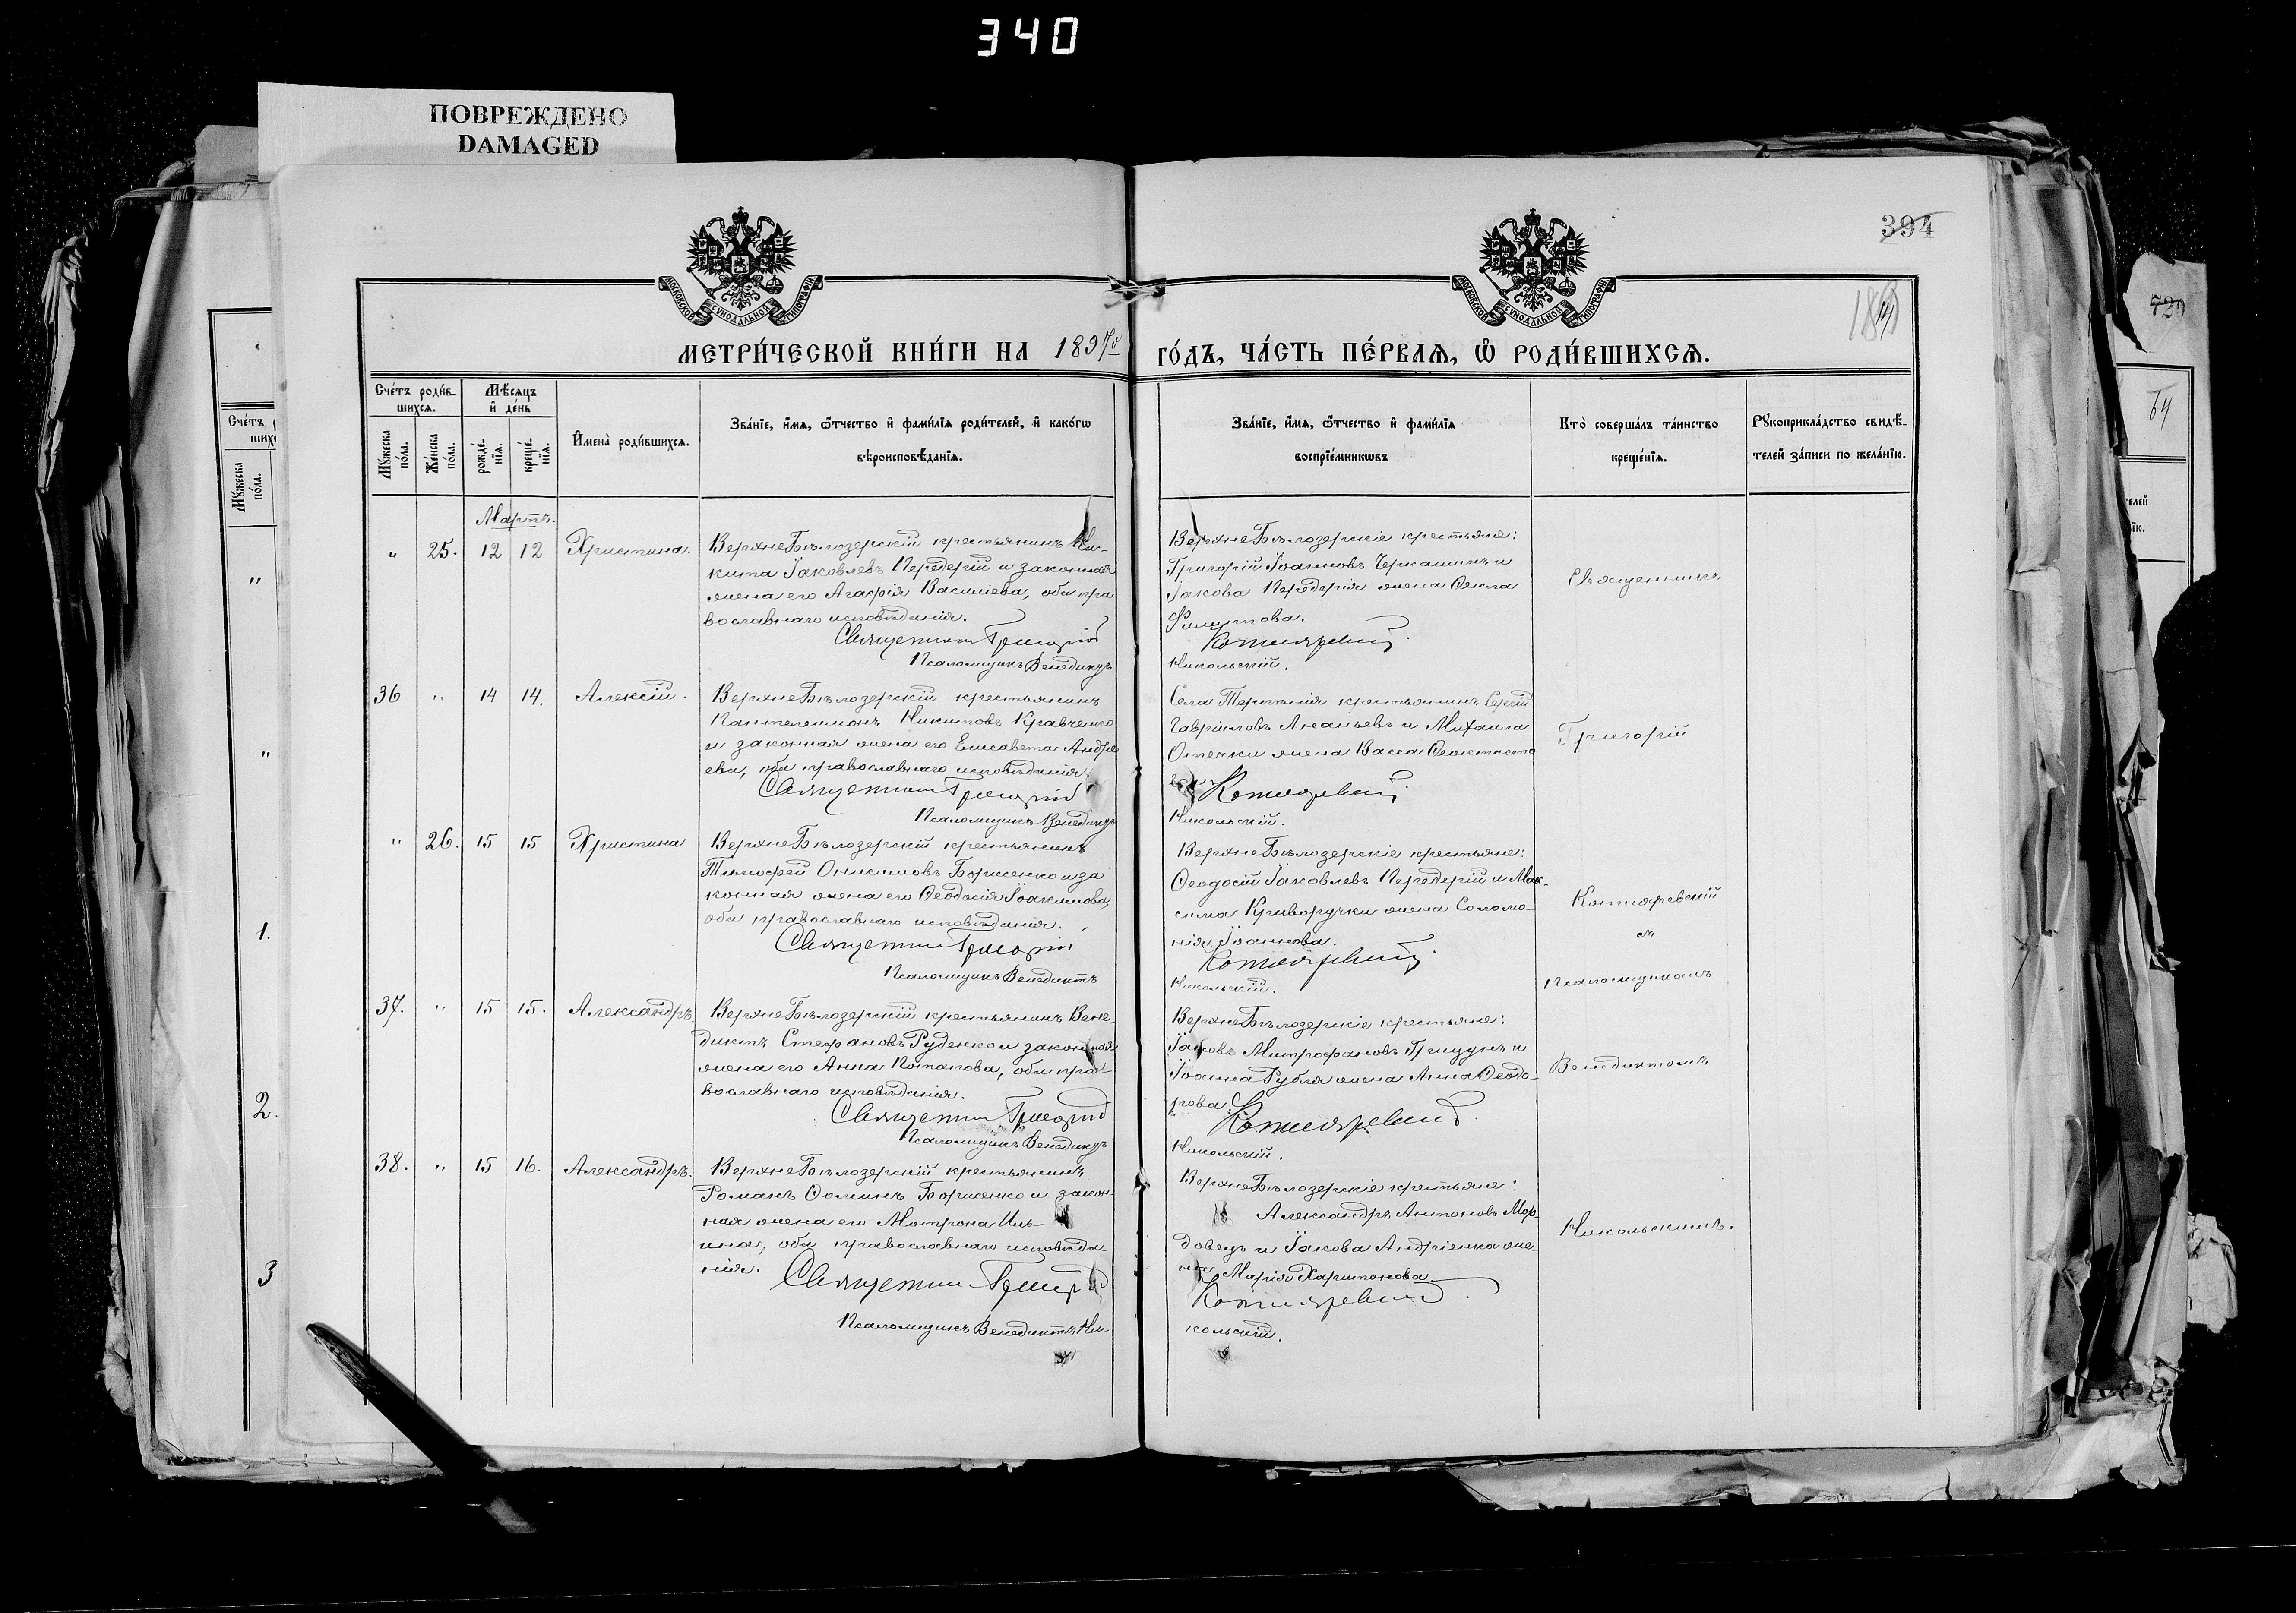 340
ПОВРЕЖДЕНО
DAMAGED
394
729
64
МОСКОВСКОЙ СѴНОДАЛЬНОЙ ТИПОГРАФІИ
МОСКОВСКОЙ СѴНОДАЛЬНОЙ ТИПОГРАФІИ
МЕТРИ́ЧЕСКОЙ КНИ́ГИ НА 1897й ГО́ДЪ, ЧА́СТЬ ПЕ́РВАѦ, Ѡ҆ РОДИ́ВШИХСѦ.
Сче́тъ роди́в-
шихсѧ.
Мѣ́сѧцъ
и҆ де́нь
Мꙋ́жеска
по́ла.
Же́нска
по́ла.
рожде́-
нїѧ.
креще́-
нїѧ.
И҆мена̀ роди́вшихсѧ.
Зва́нїе, и҆́мѧ, ѻ҆́тчество и҆ фами́лїѧ роди́телей, и҆ како́гѡ
вѣроисповѣ́данїѧ.
Зва́нїе, и҆́мѧ, ѻ҆́тчество и҆ фами́лїѧ
воспрїе́мникѡвъ
Кто̀ соверша́лъ та́инство
креще́нїѧ.
Рꙋкоприкла́дство свидѣ́-
телей за́писи по жела́нїю.
Мартъ.
" 25. 12 12 Христина.
ВерхнеБѣлозерскій крестьянинъ Ни-
кита Іаковлевъ Передерій и законная
жена его Агафія Василіева, оба пра
вославнаго исповѣданія.
Священникъ Григорій
Псаломщикъ Венедиктъ
ВерхнеБѣлозерскіе крестьяне:
Григорій Іоанновъ Черкашинъ и
Іакова Передерія жена Ѳекла
Филиппова.
Котляревскій.
Никольскій.
Священникъ
36 " 14 14. Алексій.
ВерхнеБѣлозерскій крестьянинъ
Пантелеимонъ Никитовъ Кравченко
и законная жена его Елисавета Андре
ева, оба православнаго исповѣданія.
Священникъ Григорій
Псаломщикъ Венедиктъ
Села Терпѣнія крестьянинъ Сергій
Гавріиловъ Ананьевъ и Михаила
жена Васса Ѳеоктисто
Котляревскій.
Никольскій.
Григорій
" 26. 15 15 Христина
ВерхнеБѣлозерскій крестьянинъ
Тимоѳей Онисимовъ Борисенко и за
конная жена его Ѳеодосія Іоакимова,
оба православнаго исповѣданія.
Священникъ Григорій
Псаломщикъ Венедиктъ
ВерхнеБѣлозерскіе крестьяне:
Ѳеодосій Іаковлевъ Передерій и Мак-
сима Криворучки жена Соломо-
нія Іоаннова.
Котляревскій.
Никольскій.
Котляревскій
съ
Псаломщикомъ
37. " 15 15. Александръ.
ВерхнеБѣлозерскій крестьянинъ Вене-
диктъ Стефановъ Руденко и законная
жена его Анна Потапова, оба пра-
вославнаго исповѣданія.
Священникъ Григорій
Псаломщикъ Венедиктъ
ВерхнеБѣлозерскіе крестьяне:
Іаковъ Митрофановъ Грицунъ и
Іоанна Рубля жена Анна Ѳеодо-
рова.
Котляревскій.
Никольскій.
Венедиктомъ
38. " 15 16. Александръ.
ВерхнеБѣлозерскій крестьянинъ
Романъ Ѳоминъ Борисенко и закон-
ная жена его Матрона Иль-
ина, оба православнаго исповѣда-
нія.
Священникъ Григорій
Псаломщикъ Венедиктъ Ни-
ВерхнеБѣлозерскіе крестьяне:
Александръ Антоновъ Мор-
довецъ и Іакова Андріенка же-
на Марія Харитонова.
Котляревскій.
кольскій.
Никольскимъ.
Сче́тъ
Мꙋ́жеска
по́ла.
"
"
1.
2.
3